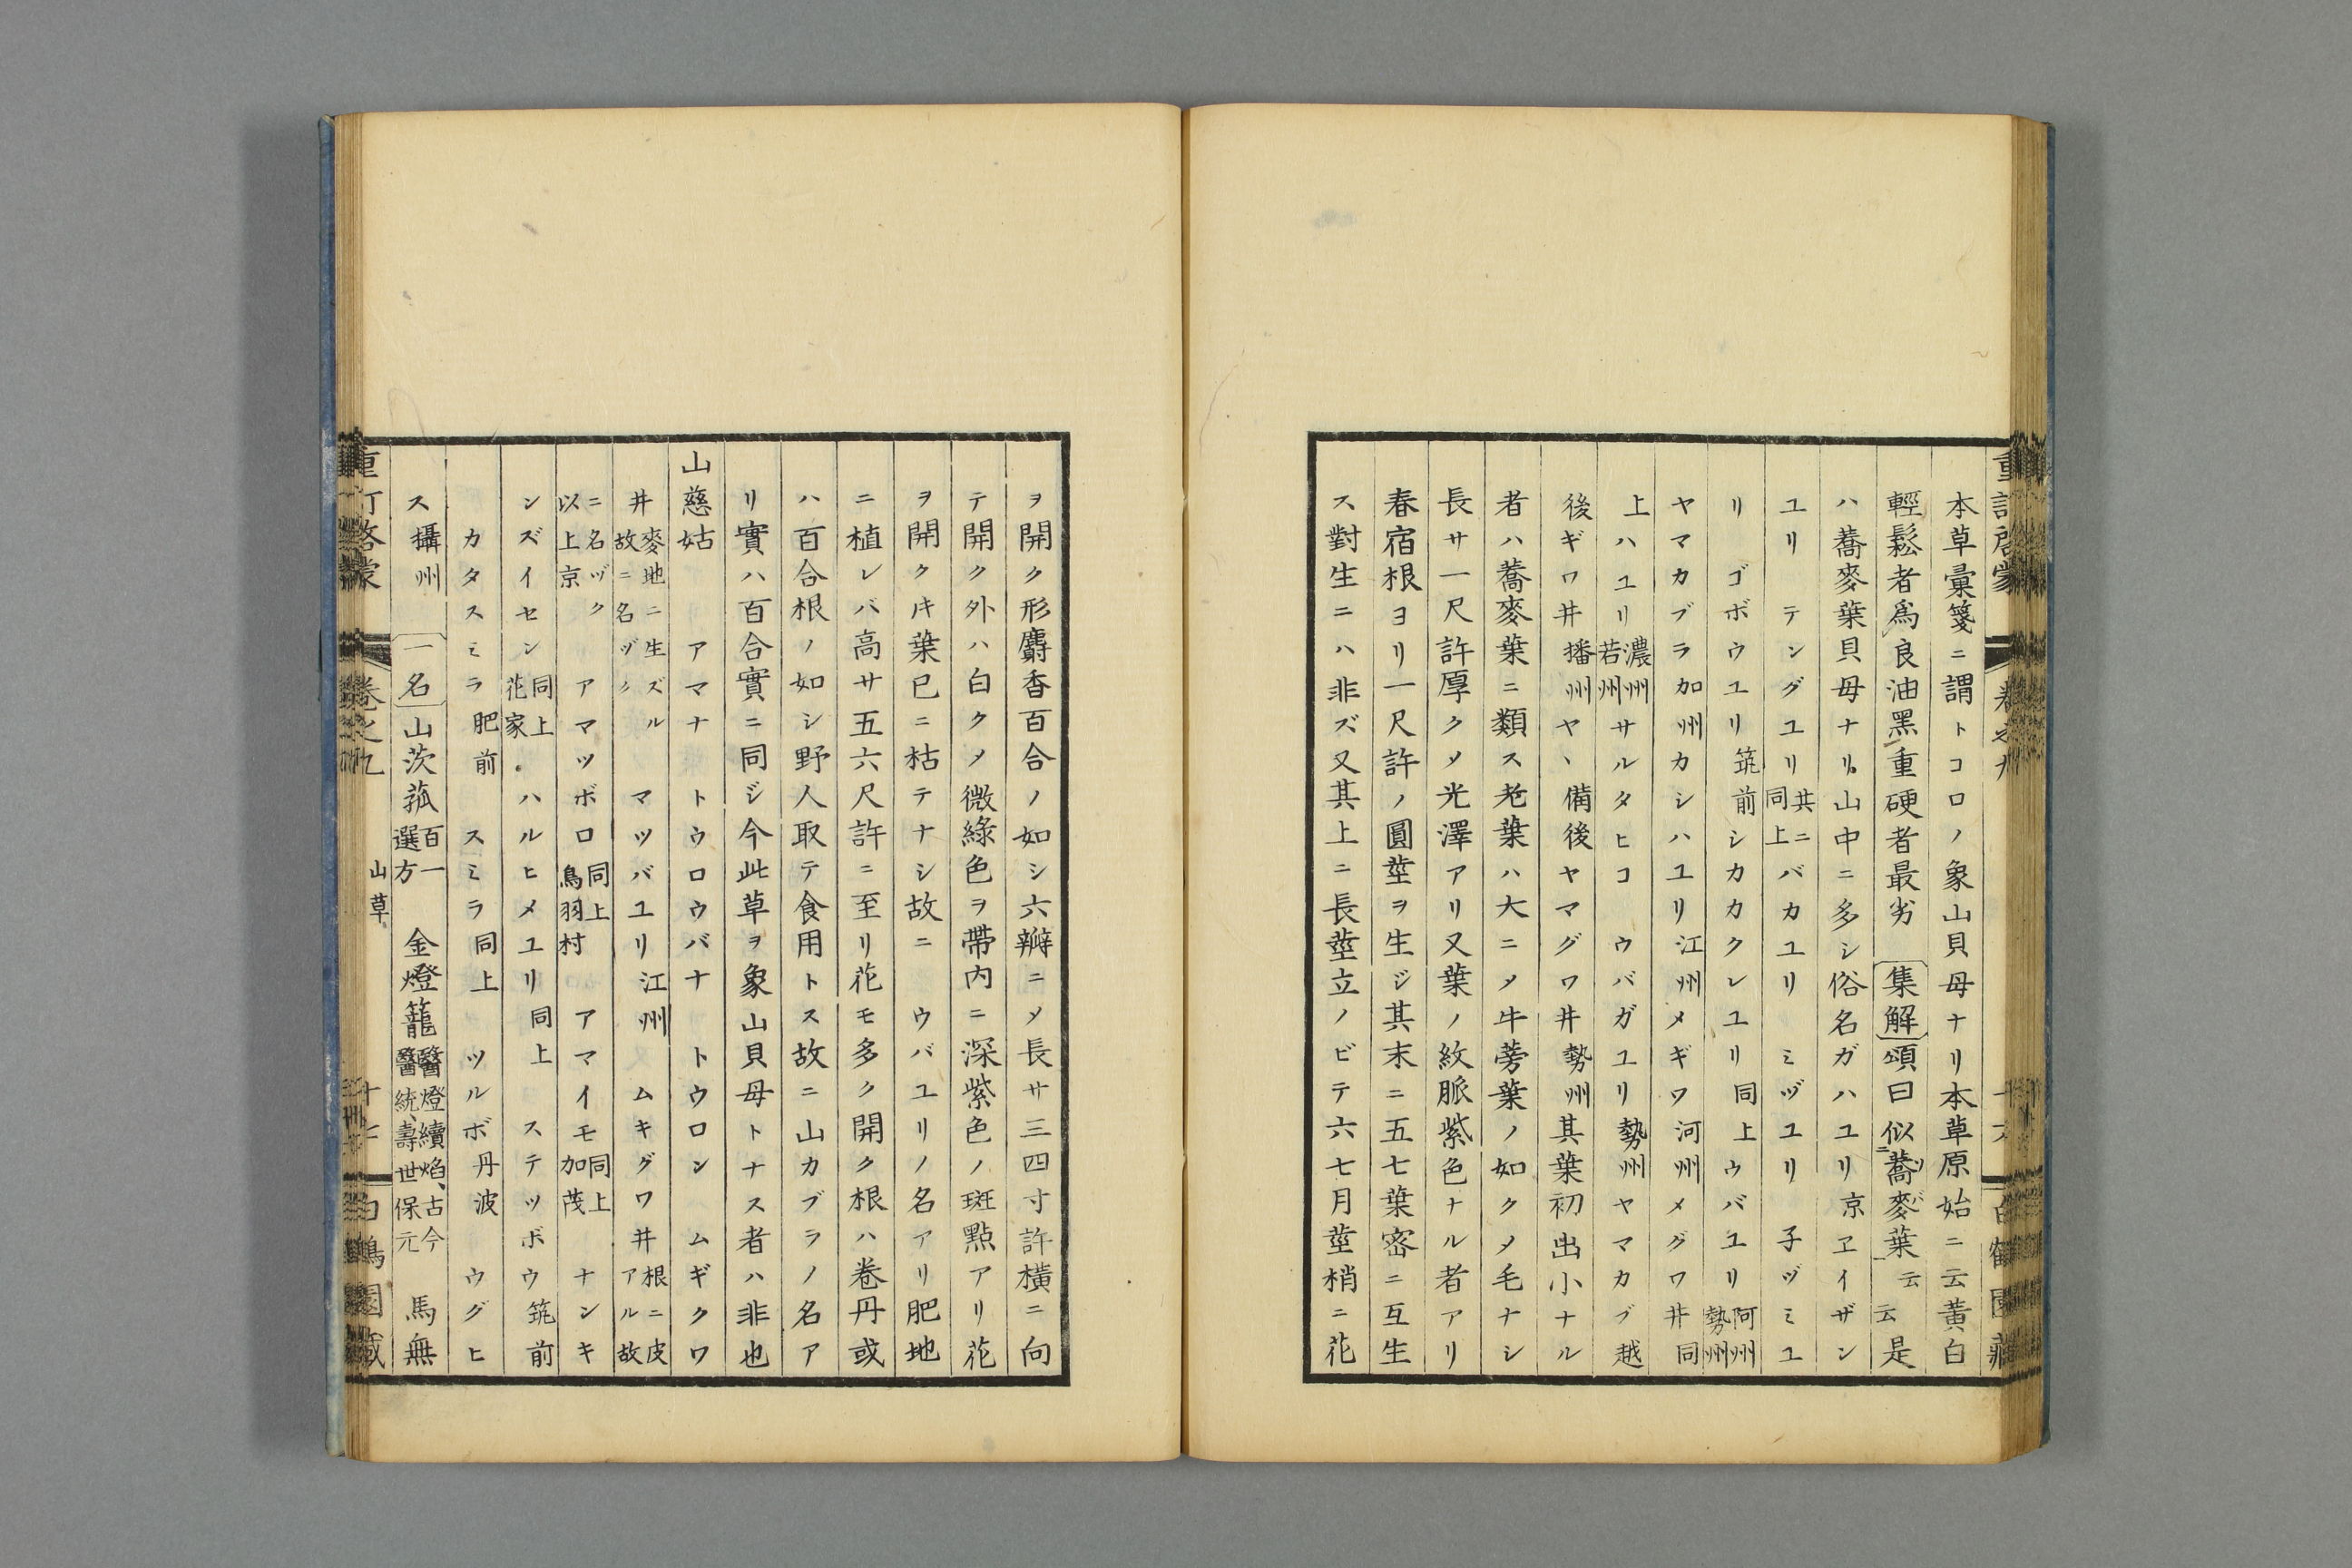 本草彙箋ニ謂トコロノ象山貝母ナリ本草原始ニ云黃白
輕鬆者爲良油黑重硬者最劣 集解 頌曰似蕎麥葉云云是
ハ蕎麥葉貝母ナリ山中ニ多シ俗名ガハユリ京ヱイザン
ユリ テングユリ共ニ同上バカユリ ミヅユリ 子ヅミユ
リ ゴボウユリ筑前シカカクレユリ同上ウバユリ阿州勢州
ヤマカブラ加州カシハユリ江州メギワ河州メグワ井同
上ハユリ濃州若州サルタヒコ ウバガユリ勢州ヤマカブ越
後ギワ井播州ヤヽ備後ヤマグワ井勢州其葉初出小ナル
者ハ蕎麥葉ニ類ス老葉ハ大ニメ牛蒡葉ノ如クメ毛ナシ
長サ一尺許厚クメ光澤アリ又葉ノ紋脈紫色ナル者アリ
春宿根ヨリ一尺許ノ圓莖ヲ生ジ其末ニ五七葉密ニ互生
ス對生ニハ非ズ又其上ニ長莖立ノビテ六七月莖梢ニ花
ヲ開ク形麝香百合ノ如シ六瓣ニメ長サ三四寸許橫ニ向
テ開ク外ハ白クメ微綠色ヲ帶內ニ深紫色ノ斑點アリ花
ヲ開クキ葉已ニ枯テナシ故ニ ウバユリノ名アリ肥地
ニ植レバ高サ五六尺許ニ至リ花モ多ク開ク根ハ卷丹或
ハ百合根ノ如シ野人取テ食用トス故ニ山カブラノ名ア
リ實ハ百合實ニ同ジ今此草ヲ象山貝母トナス者ハ非也
山慈姑 アマナ トウロウバナ トウロン ムギクワ
井麥地ニ生ズル故ニ名ヅク マツバユリ江州 ムキグワ井根ニ皮アル故
ニ名ヅク以上京 アマツボロ同上鳥羽村 アマイモ同上加茂 ナンキ
ンズイセン同上花家 ハルヒメユリ同上 ステツボウ筑前
カタスミラ肥前 スミラ同上 ツルボ丹波 ウグヒ
ス攝州 一名 山茨菰百一選方 金燈籠醫燈續焰、古今醫統、壽世保元 馬無
重訂啓蒙 卷之九 山草 十七 白鶴園藏